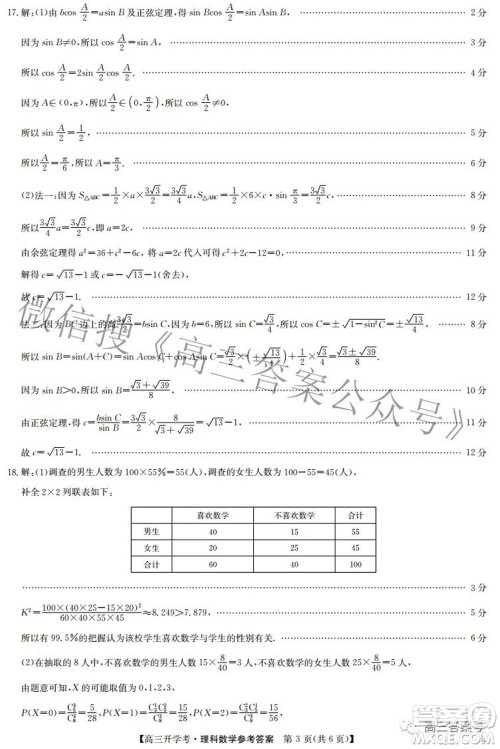 17.解:(1)由bcos A/2=asin B及正弦定理,得sin Bcos A/2=sin Asin B, 2分
因为sin B≠0,所以cos A/2=sin A, 3分
所以cos A/2=2sin A/2 cos A/2. 4分
因为A∈(0,π),所以A/2∈(0,π/2),所以cos A/2≠0,
所以sin A/2=1/2, 5分
所以A/2=π/6,所以A=π/3. 6分
(2)法一:因为S△ABC=1/2×a×3√3/2=3√3/4 a,S△ABC=1/2×6×c·sin π/3=3√3/2 c, 8分
所以3√3/4 a=3√3/2 c,即a=2c, 9分
由余弦定理得a²=36+c²-6c,将a=2c代入可得c²+2c-12=0, 11分
解得c=√13-1或c=-√13-1(舍去),
故c=√13-1. 12分
法二:因为BC边上的高3√3/2=bsin C,因为b=6,所以sin C=√3/4,所以cos C=±√(1-sin²C)=±√13/4, 8分
所以sin B=sin(A+C)=sin Acos C+cos Asin C=√3/2×(±√13/4)+1/2×√3/4=(√3±√39)/8.
因为sin B>0,所以sin B=(√3+√39)/8, 10分
由正弦定理,得c=bsin C/sin B=3√3/2×8/(√3+√39)=√13-1, 11分
故c=√13-1. 12分
18.解:(1)调查的男生人数为100×55%=55(人),调查的女生人数为100-55=45(人),
补全2×2列联表如下:
喜欢数学 不喜欢数学 合计
男生 40 15 55
女生 20 25 45
合计 60 40 100
3分
K²=100×(40×25-15×20)²/(60×40×45×55)≈8.249>7.879, 5分
所以有99.5%的把握认为该校学生喜欢数学与学生的性别有关. 6分
(2)在抽取的8人中,不喜欢数学的男生人数15×8/40=3人,不喜欢数学的女生人数为25×8/40=5人,
由题意可知,X的可能取值为0,1,2,3,
P(X=0)=C₅³/C₈³=5/28,P(X=1)=C₃¹C₅²/C₈³=15/28,P(X=2)=C₃²C₅¹/C₈³=15/56,
【高三开学考·理科数学参考答案 第3页(共6页)】
微信搜《高三答案公众号》
高三答案号